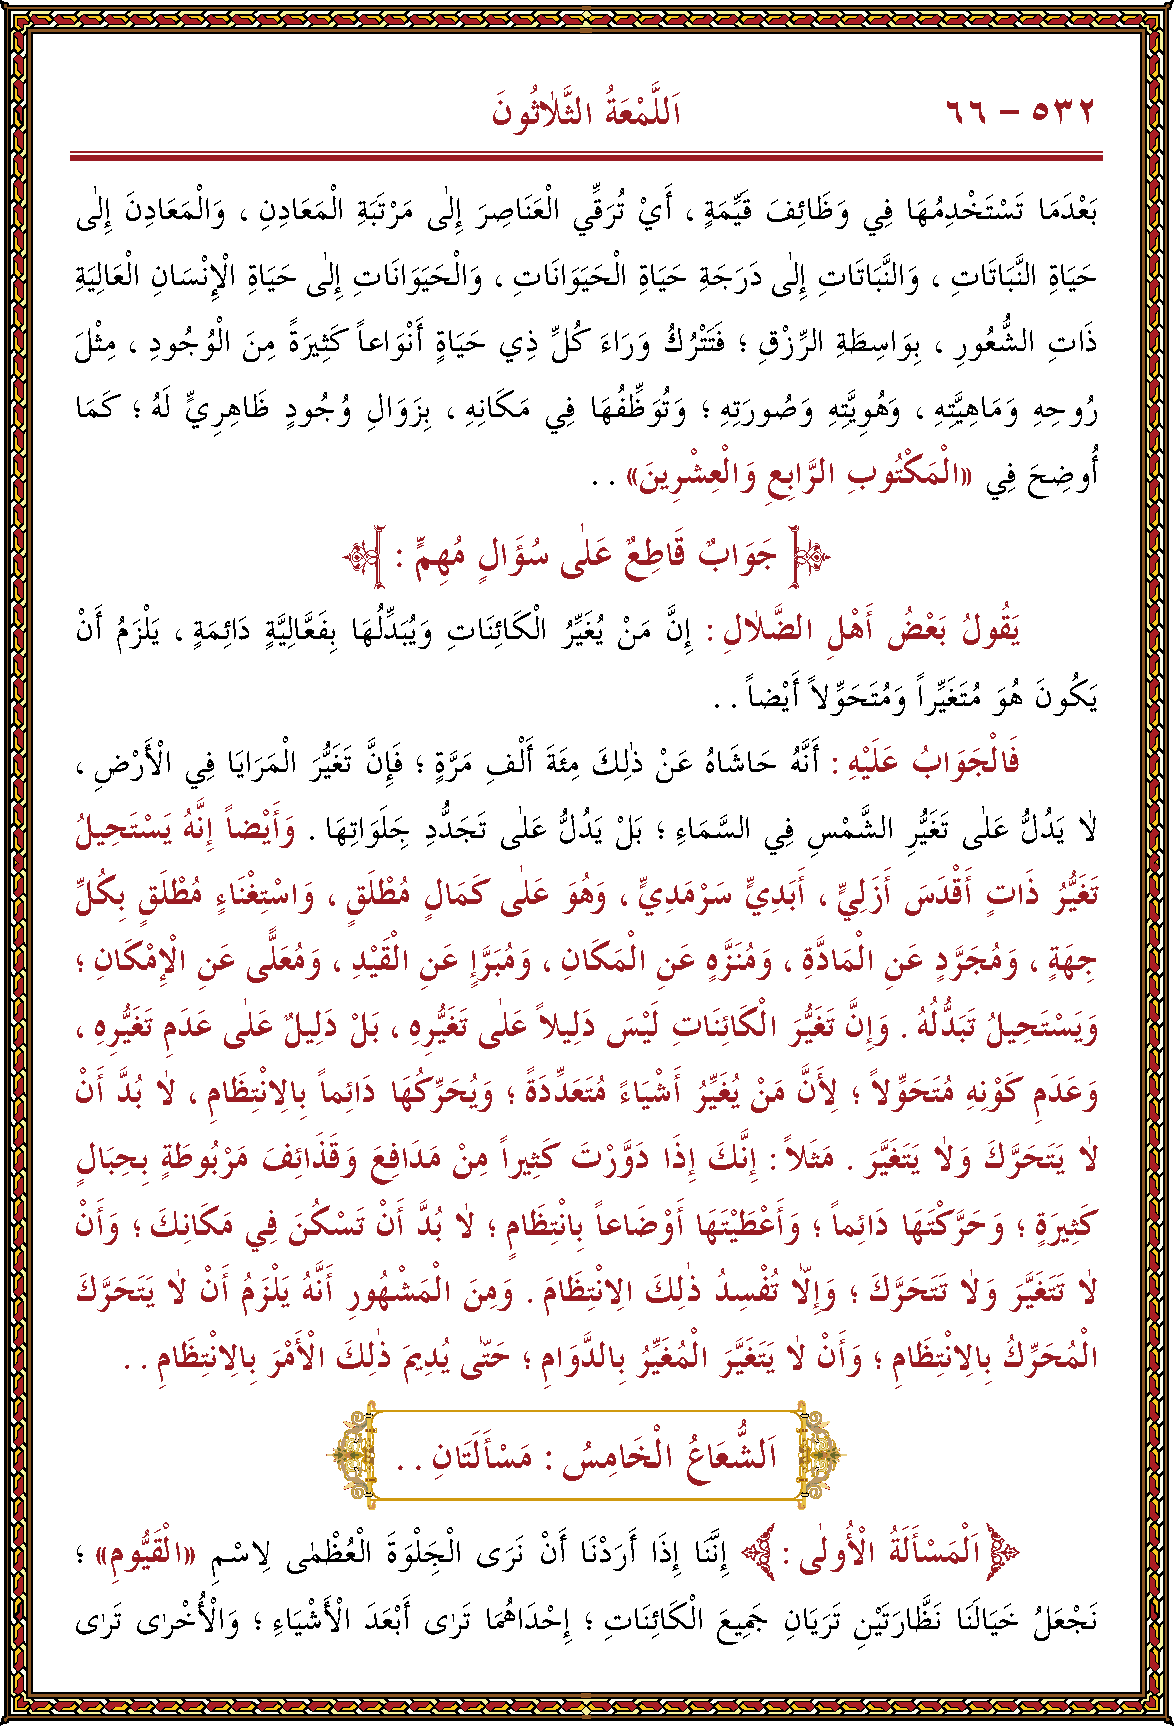 ٥٣٢ – ٦٦ اَللَّمْعَةُ الثَّلَاثُونَ
بَعْدَمَا تَسْتَخْدِمُهَا فِي وَظَائِفَ قَيِّمَةٍ ، أَيْ تُرَقِّي الْعَنَاصِرَ إِلٰى مَرْتَبَةِ الْمَعَادِنِ ، وَالْمَعَادِنَ إِلٰى
حَيَاةِ النَّبَاتَاتِ ، وَالنَّبَاتَاتِ إِلٰى دَرَجَةِ حَيَاةِ الْحَيَوَانَاتِ ، وَالْحَيَوَانَاتِ إِلٰى حَيَاةِ الْإِنْسَانِ الْعَالِيَةِ
ذَاتِ الشُّعُورِ ، بِوَاسِطَةِ الرِّزْقِ ؛ فَتَتْرُكُ وَرَاءَ كُلِّ ذِي حَيَاةٍ أَنْوَاعاً كَثِيرَةً مِنَ الْوُجُودِ ، مِثْلَ
رُوحِهِ وَمَاهِيَّتِهِ ، وَهُوِيَّتِهِ وَصُورَتِهِ ؛ وَتُوَظِّفُهَا فِي مَكَانِهِ ، بِزَوَالِ وُجُودٍ ظَاهِرِيٍّ لَهُ ؛ كَمَا
أُوضِحَ فِي «الْمَكْتُوبِ الرَّابِعِ وَالْعِشْرِينَ» . .
جَوَابٌ قَاطِعٌ عَلٰى سُؤَالٍ مُهِمٍّ :
يَقُولُ بَعْضُ أَهْلِ الضَّلَالِ : إِنَّ مَنْ يُغَيِّرُ الْكَائِنَاتِ وَيُبَدِّلُهَا بِفَعَّالِيَّةٍ دَائِمَةٍ ، يَلْزَمُ أَنْ
يَكُونَ هُوَ مُتَغَيِّراً وَمُتَحَوِّلاً أَيْضاً . .
فَالْجَوَابُ عَلَيْهِ : أَنَّهُ حَاشَاهُ عَنْ ذٰلِكَ مِئَةَ أَلْفِ مَرَّةٍ ؛ فَإِنَّ تَغَيُّرَ الْمَرَايَا فِي الْأَرْضِ ،
لَا يَدُلُّ عَلٰى تَغَيُّرِ الشَّمْسِ فِي السَّمَاءِ ؛ بَلْ يَدُلُّ عَلٰى تَجَدُّدِ جِلَوَاتِهَا . وَأَيْضاً إِنَّهُ يَسْتَحِيلُ
تَغَيُّرُ ذَاتٍ أَقْدَسَ أَزَلِيٍّ ، أَبَدِيٍّ سَرْمَدِيٍّ ، وَهُوَ عَلٰى كَمَالٍ مُطْلَقٍ ، وَاسْتِغْنَاءٍ مُطْلَقٍ بِكُلِّ
جِهَةٍ ، وَمُجَرَّدٍ عَنِ الْمَادَّةِ ، وَمُنَزَّهٍ عَنِ الْمَكَانِ ، وَمُبَرَّإٍ عَنِ الْقَيْدِ ، وَمُعَلًّى عَنِ الْإِمْكَانِ ؛
وَيَسْتَحِيلُ تَبَدُّلُهُ . وَإِنَّ تَغَيُّرَ الْكَائِنَاتِ لَيْسَ دَلِيلاً عَلٰى تَغَيُّرِهِ ، بَلْ دَلِيلٌ عَلٰى عَدَمِ تَغَيُّرِهِ ،
وَعَدَمِ كَوْنِهِ مُتَحَوِّلاً ؛ لِأَنَّ مَنْ يُغَيِّرُ أَشْيَاءً مُتَعَدِّدَةً ؛ وَيُحَرِّكُهَا دَائِماً بِالِانْتِظَامِ ، لَا بُدَّ أَنْ
لَا يَتَحَرَّكَ وَلَا يَتَغَيَّرَ . مَثَلاً : إِنَّكَ إِذَا دَوَّرْتَ كَثِيراً مِنْ مَدَافِعَ وَقَذَائِفَ مَرْبُوطَةٍ بِحِبَالٍ
كَثِيرَةٍ ؛ وَحَرَّكْتَهَا دَائِماً ؛ وَأَعْطَيْتَهَا أَوْضَاعاً بِانْتِظَامٍ ؛ لَا بُدَّ أَنْ تَسْكُنَ فِي مَكَانِكَ ؛ وَأَنْ
لَا تَتَغَيَّرَ وَلَا تَتَحَرَّكَ ؛ وَإِلَّا تُفْسِدُ ذٰلِكَ الِانْتِظَامَ . وَمِنَ الْمَشْهُورِ أَنَّهُ يَلْزَمُ أَنْ لَا يَتَحَرَّكَ
الْمُحَرِّكُ بِالِانْتِظَامِ ؛ وَأَنْ لَا يَتَغَيَّرَ الْمُغَيِّرُ بِالدَّوَامِ ؛ حَتّٰى يُدِيمَ ذٰلِكَ الْأَمْرَ بِالِانْتِظَامِ . .
اَلشُّعَاعُ الْخَامِسُ : مَسْأَلَتَانِ . .
اَلْمَسْأَلَةُ الْأُولٰى : إِنَّنَا إِذَا أَرَدْنَا أَنْ نَرَى الْجِلْوَةَ الْعُظْمٰى لِاسْمِ «الْقَيُّومِ» ؛
نَجْعَلُ خَيَالَنَا نَظَّارَتَيْنِ تَرَيَانِ جَمِيعَ الْكَائِنَاتِ ؛ إِحْدَاهُمَا تَرٰى أَبْعَدَ الْأَشْيَاءِ ؛ وَالْأُخْرٰى تَرٰى